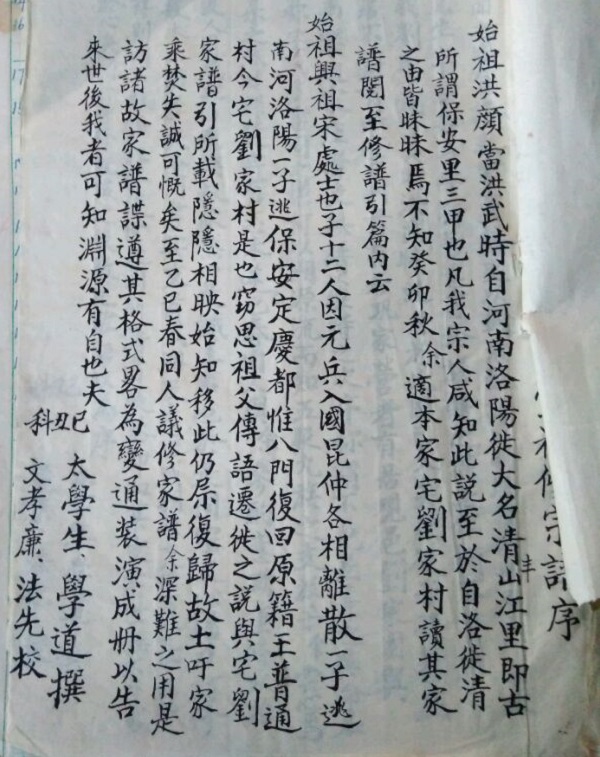 修宗譜序
始祖洪顔當洪武時自河南洛陽徙大名清丰山江里即古
所謂保安里三甲也凡我宗人咸知此説至於自洛徙清
之由皆昧昧焉不知癸卯秋余適本家宅劉家村讀其家
譜閲至修譜引篇内云
始祖興祖宋處士也子十二人因元兵入國昆仲各相離散一子逃
南河洛陽一子逃保安定慶都惟八門復回原籍王普通
村今宅劉家村是也窃思祖父傳語遷徙之説與宅劉
家譜引所載隱隱相映始知移此仍屬復歸故土吁家
乘焚失誠可慨矣至乙巳春同人議修家譜余深難之用是
訪諸故家譜諜遵其格式畧為變通装演成册以告
來世後我者可知淵源有自也夫
太學生 學道 撰
己丑科 文孝廉 法先校